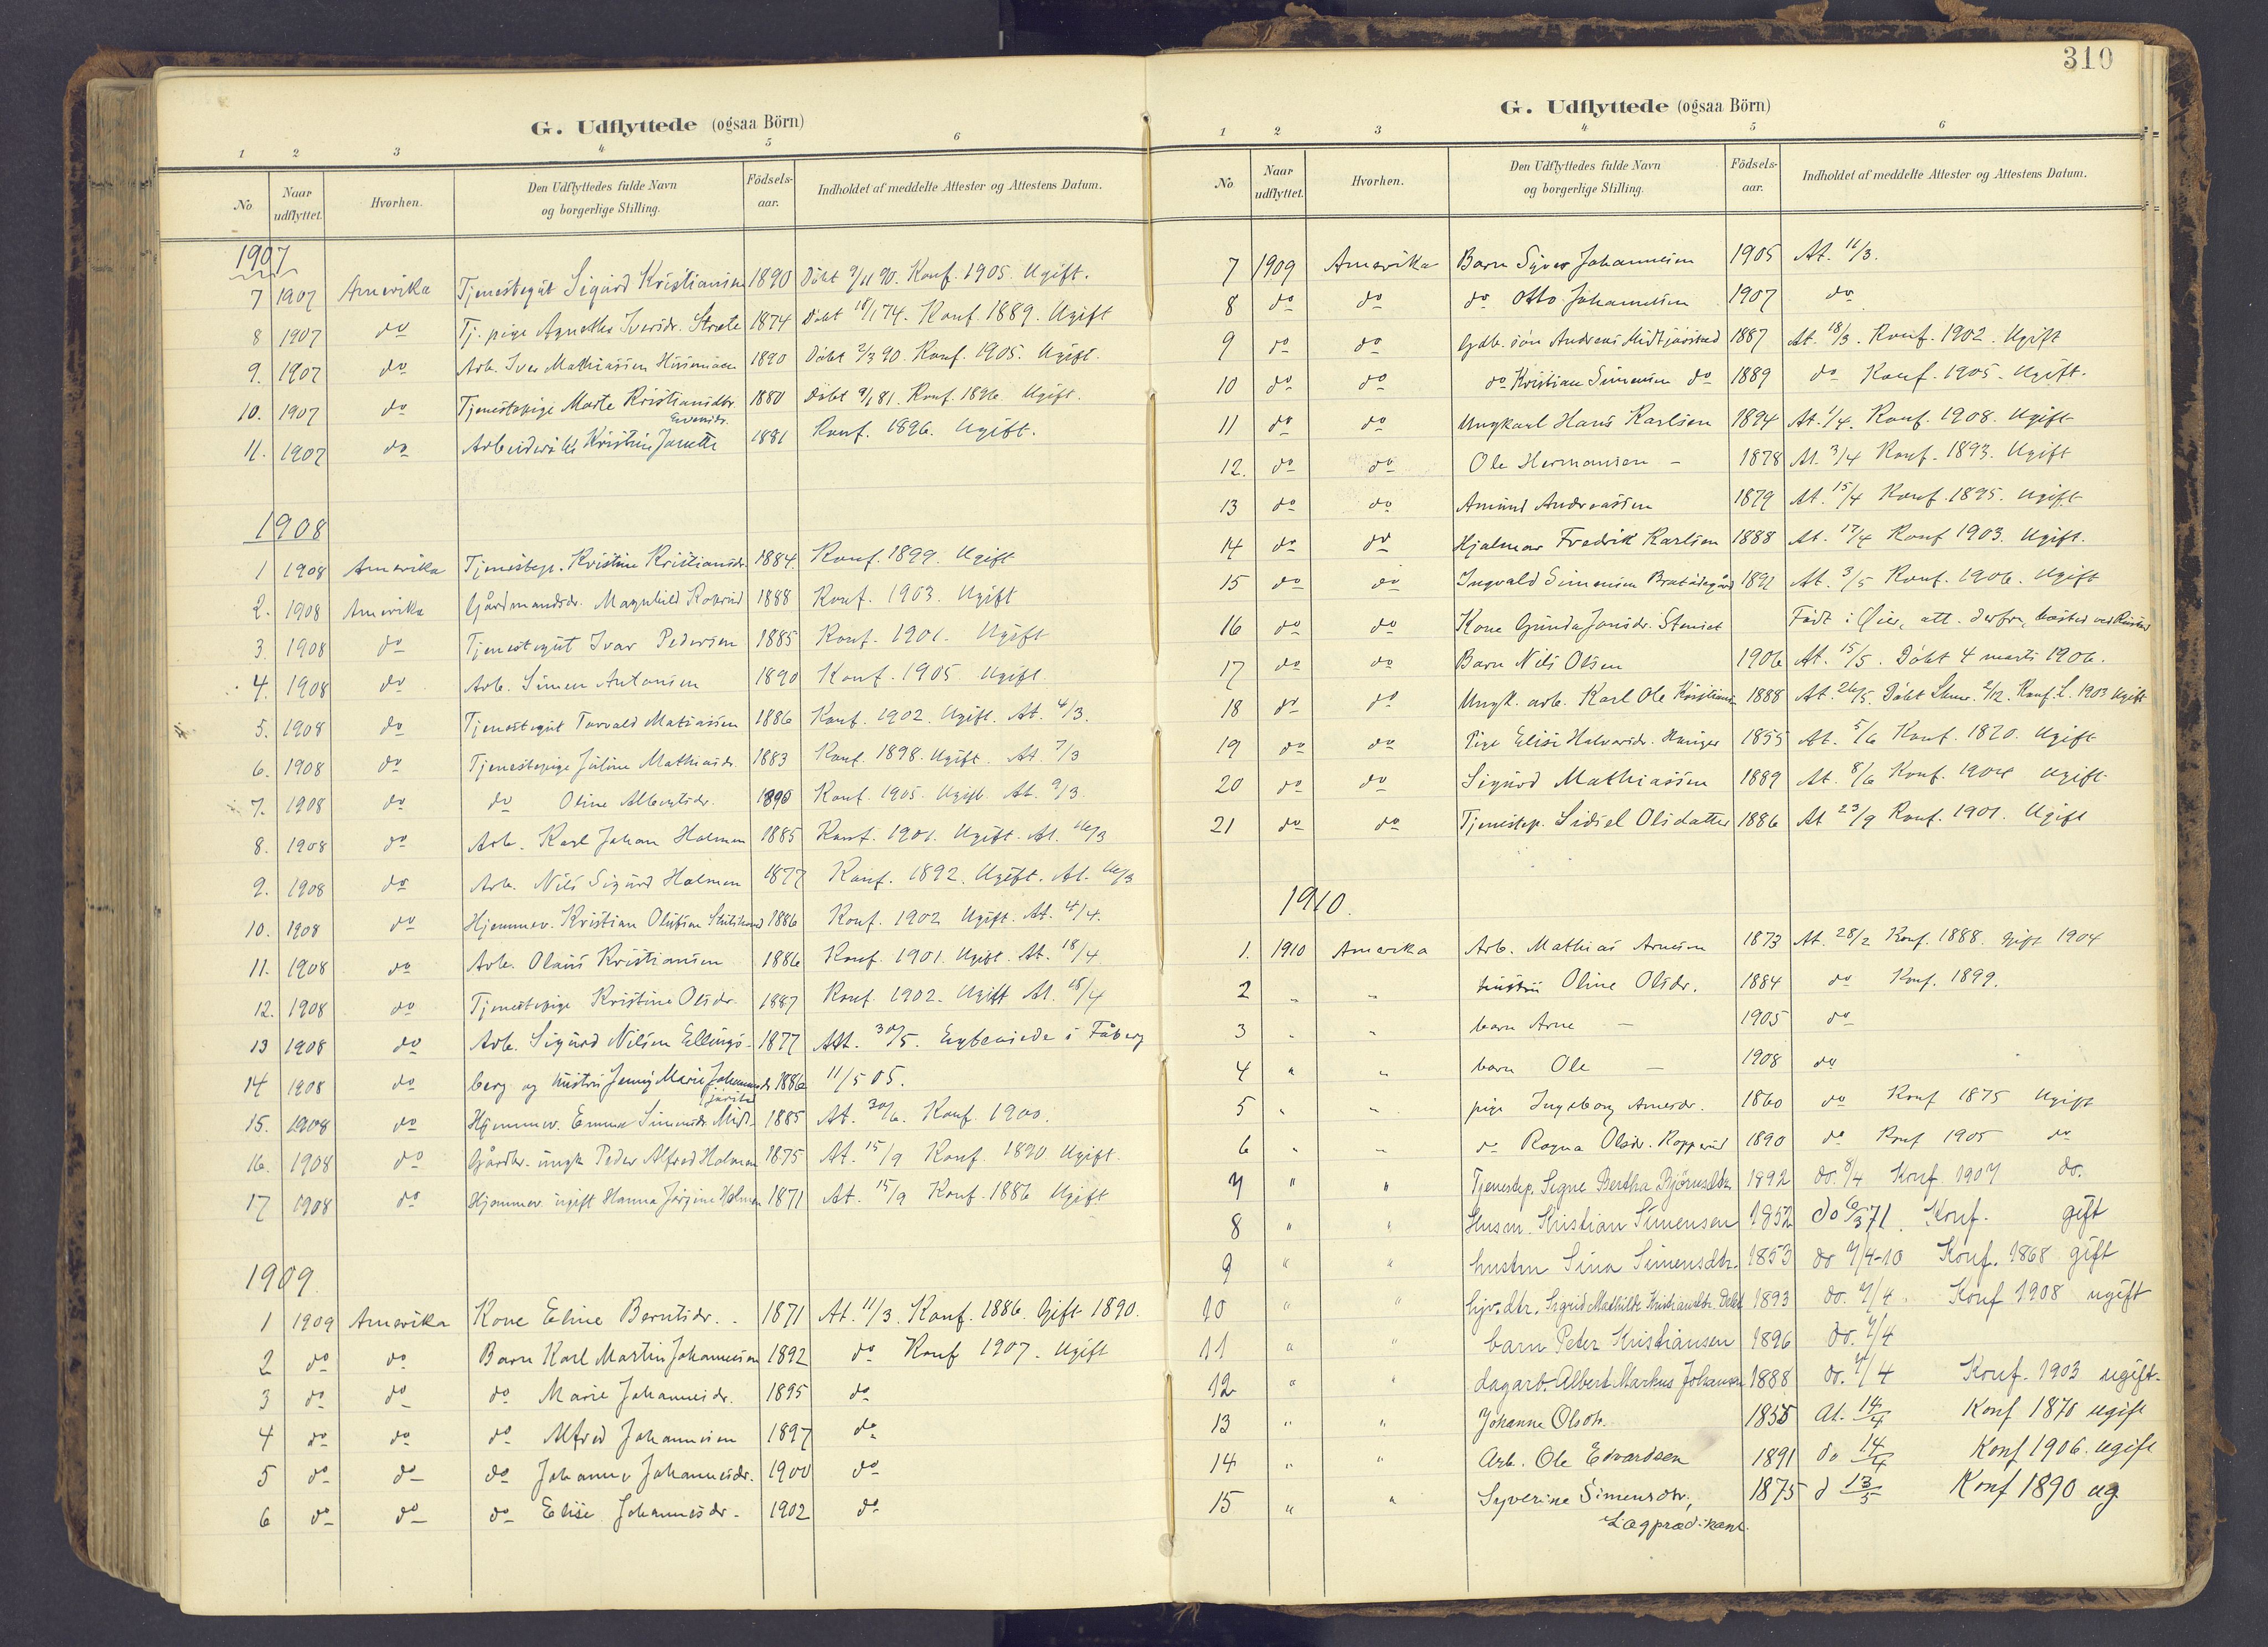 310
G. Udflyttede (ogsaa Börn)
1 2 3 4 5 6
No. Naar udflyttet. Hvorhen. Den Udflyttedes fulde Navn og borgerlige Stilling. Födsels-aar. Indholdet af meddelte Attester og Attestens Datum.
1907
7 1907 Amerika Tjenestegut Sigurd Kristiansen 1890 Döbt 9/11 90. Konf. 1905. Ugift.
8 1907 do Tj. pige Agnethe Iversdr. Strete 1874 Döbt 18/1 74. Konf. 1889. Ugift
9. 1907 do Arb. Iver Mathiassen 1890 Döbt 2/3 90. Konf. 1905. Ugift.
10. 1907 do Tjenestepige Marte Kristiansdtr. 1880 Döbt 9/1 81. Konf. 1896. Ugift.
Evensdr.
11. 1907 do Kristine Janette 1881 Konf. 1896. Ugift.
1908
1 1908 Amerika Tjenestep. Kristine Kristiansdr. 1884. Konf. 1899. Ugift
2. 1908 Amerika Gårdmandsdr. Magnhild Rokvud 1888 Konf. 1903. Ugift
3. 1908 do Tjenestegut Ivar Pedersen 1885 Konf. 1901. Ugift
4. 1908 do Arb. Simen Antonsen 1890 Konf. 1905. Ugift
5. 1908 do Tjenestegut Torvald Matiassen 1886 Konf. 1902. Ugift. At. 4/3.
6. 1908 do Tjenestepige Juline Mathiasdr. 1883 Konf. 1898. Ugift. At. 7/3
7. 1908 do do Oline Albertsdr. 1890 Konf. 1905. Ugift. At. 9/3.
8. 1908 do Arb. Karl Johan Holmen 1885 Konf. 1901. Ugift. At. 16/3
9. 1908 do Arb. Nils Sigurd Holmen 1877 Konf. 1892. Ugift. At. 16/3
10. 1908 do Hjemmev. Kristian Olufsen 1886 Konf. 1902 Ugift. At. 4/4.
11. 1908 do Arb. Olaus Kristiansen 1886 Konf. 1901. Ugift. At. 18/4
12. 1908 do Tjenestepige Kristine Olsdr. 1887 Konf. 1902. Ugift At. 18/4
13 1908 do Arb. Sigurd Nilsen Ellings- 1877 Att. 30/5. Egteviede i Fåberg
14 1908 do berg og hustru Jenny Marie Johannesdr. 1886 11/5 05.
jörstad
15. 1908 do Hjemmev. Emma Simensdr. Midt- 1885 At. 30/6. Konf. 1900.
16. 1908 do Gårdbr. ungk. Peder Alfred Holmen 1875 At. 15/9 Konf. 1890 Ugift.
17 1908 do Hjemmev. ugift Hanna Jörgine Holmen 1871 At. 15/9 Konf. 1886 Ugift
1909.
1 1909 Amerika Kone Eline Berntsdr. 1871 At. 11/3. Konf. 1886. Gift 1890.
2 do do Barn Karl Martin Johannesen 1892 do Konf 1907. Ugift
3 do do do Marie Johannesdr. 1895 do
4 do do do Alfred Johannesen 1897 do
5 do do do Johanne Johannesdr. 1900 do
6 do do do Elise Johannesdr. 1902 do
G. Udflyttede (ogsaa Börn)
1 2 3 4 5 6
No Naar udflyttet. Hvorhen. Den Udflyttedes fulde Navn og borgerlige Stilling. Födsels-aar. Indholdet af meddelte Attester og Attestens Datum.
7 1909 Amerika Barn Syver Johannesen 1905 At. 11/3.
8 do do do Otto Johannesen 1907 do
9 do do Gdb. sön Andreas Midtjörstad 1887 At. 18/3. Konf. 1902. Ugift
10 do do do Kristian Simensen do 1889 do Konf. 1905. Ugift.
11 do do Ungkarl Hans Karlsen 1894 At. 1/4. Konf. 1908. Ugift
12. do do Ole Hermansen - 1878 At. 3/4 Konf. 1893. Ugift
13 do do Amund Andreassen 1879 At. 15/4 Konf. 1895. Ugift
14 do do Hjalmar Fredrik Karlsen 1888 At. 17/4 Konf 1903. Ugift.
15 do do Ingvald Simensen 1892 At. 3/5 Konf. 1906. Ugift
16 do do Kone Gunda Jonsdr. Födt i Öier, att. derfra,
17 do do Barn Nils Olsen 1906 At. 15/5. Döbt 4 marts 1906.
18 do do Ungk. arb. Karl Ole Kristiansen 1888 At. 26/5. Döbt 2/12. Konf. L. 1903 Ugift
19 do do Pige Elise Halvorsdr. 1855 At. 5/6 Konf. 1870. Ugift
20 do do Sigurd Mathiassen 1889 At. 8/6 Konf. 1904 Ugift
21 do do Tjenestep. Sidsel Olsdatter 1886 At 23/9 Konf. 1901. Ugift
1910.
1. 1910 Amerika Arb. Mathias Arnesen 1873 At. 28/2 Konf. 1888. Gift 1904
2 " " hustru Oline Olsdr. 1884 do Konf. 1899.
3 " " barn Arne - 1905 do
4 " " barn Ole - 1908 do
5 " " pige Ingeborg Arnesdr. 1860 do Konf 1875 Ugift
6 " " do Ragna Olsdr. Kopperud 1890 do Konf 1905 do
7 " " Tjenestep. Signe Bertha Björnsdtr. 1892 do. 8/4 Konf. 1907 do.
8 " " Husm. Kristian Simensen 1852 do 6/3 71. Konf. gift
9 " " hustru Sina Simensdtr. 1853 do 7/4-10 Konf. 1868 gift
10 " " hjv. dtr. Sigrid Mathilde Kristiansdtr. 1893 do. 7/4. Konf 1908 ugift
11 " " barn Peter Kristiansen 1896 do. 7/4
12 " " dagarb. Albert Markus Johansen 1888 do. 7/4 Konf. 1903 ugift.
13 " " Johanne Olsdtr. 1855 At. 14/4 Konf 1870 ugift
14 " " Arb. Ole Edvardsen 1891 do 14/4 Konf 1906. ugift
15 " " Syverine Simensdtr., 1875 d 13/5 Konf 1890 ug.
Lægprædikant.